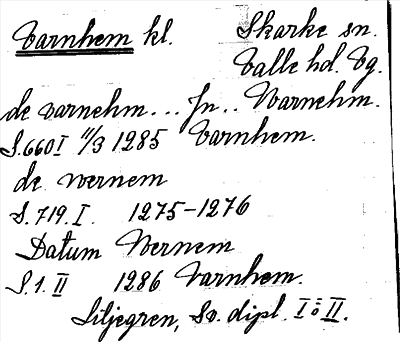 Varnhem kl. Skarke sn.
Valle hd. Vg.
de varnehm... Jn.. Warnehm.
S. 660 I 11/3 1285 Varnhem.
de wernem
S. 719. I. 1275-1276
Datum Wernem
S. 1. II 1286 Varnhem.
Liljegren, Sv. dipl. I o II.